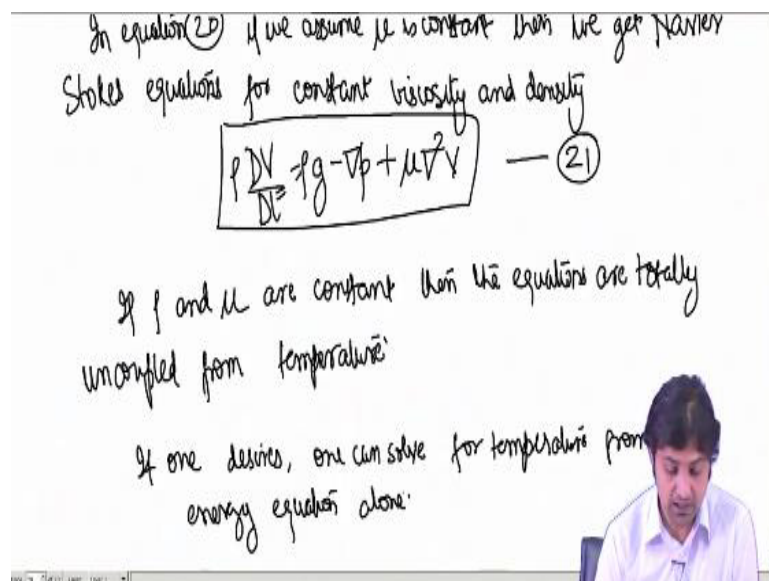 In equation (20) if we assume μ is constant then we get Navier
Stokes equations for constant viscosity and density
ρ DV/Dt = ρg - ∇p + μ∇²V — (21)
If ρ and μ are constant then the equations are totally
uncoupled from temperature.
If one desires, one can solve for temperature from
energy equation alone.